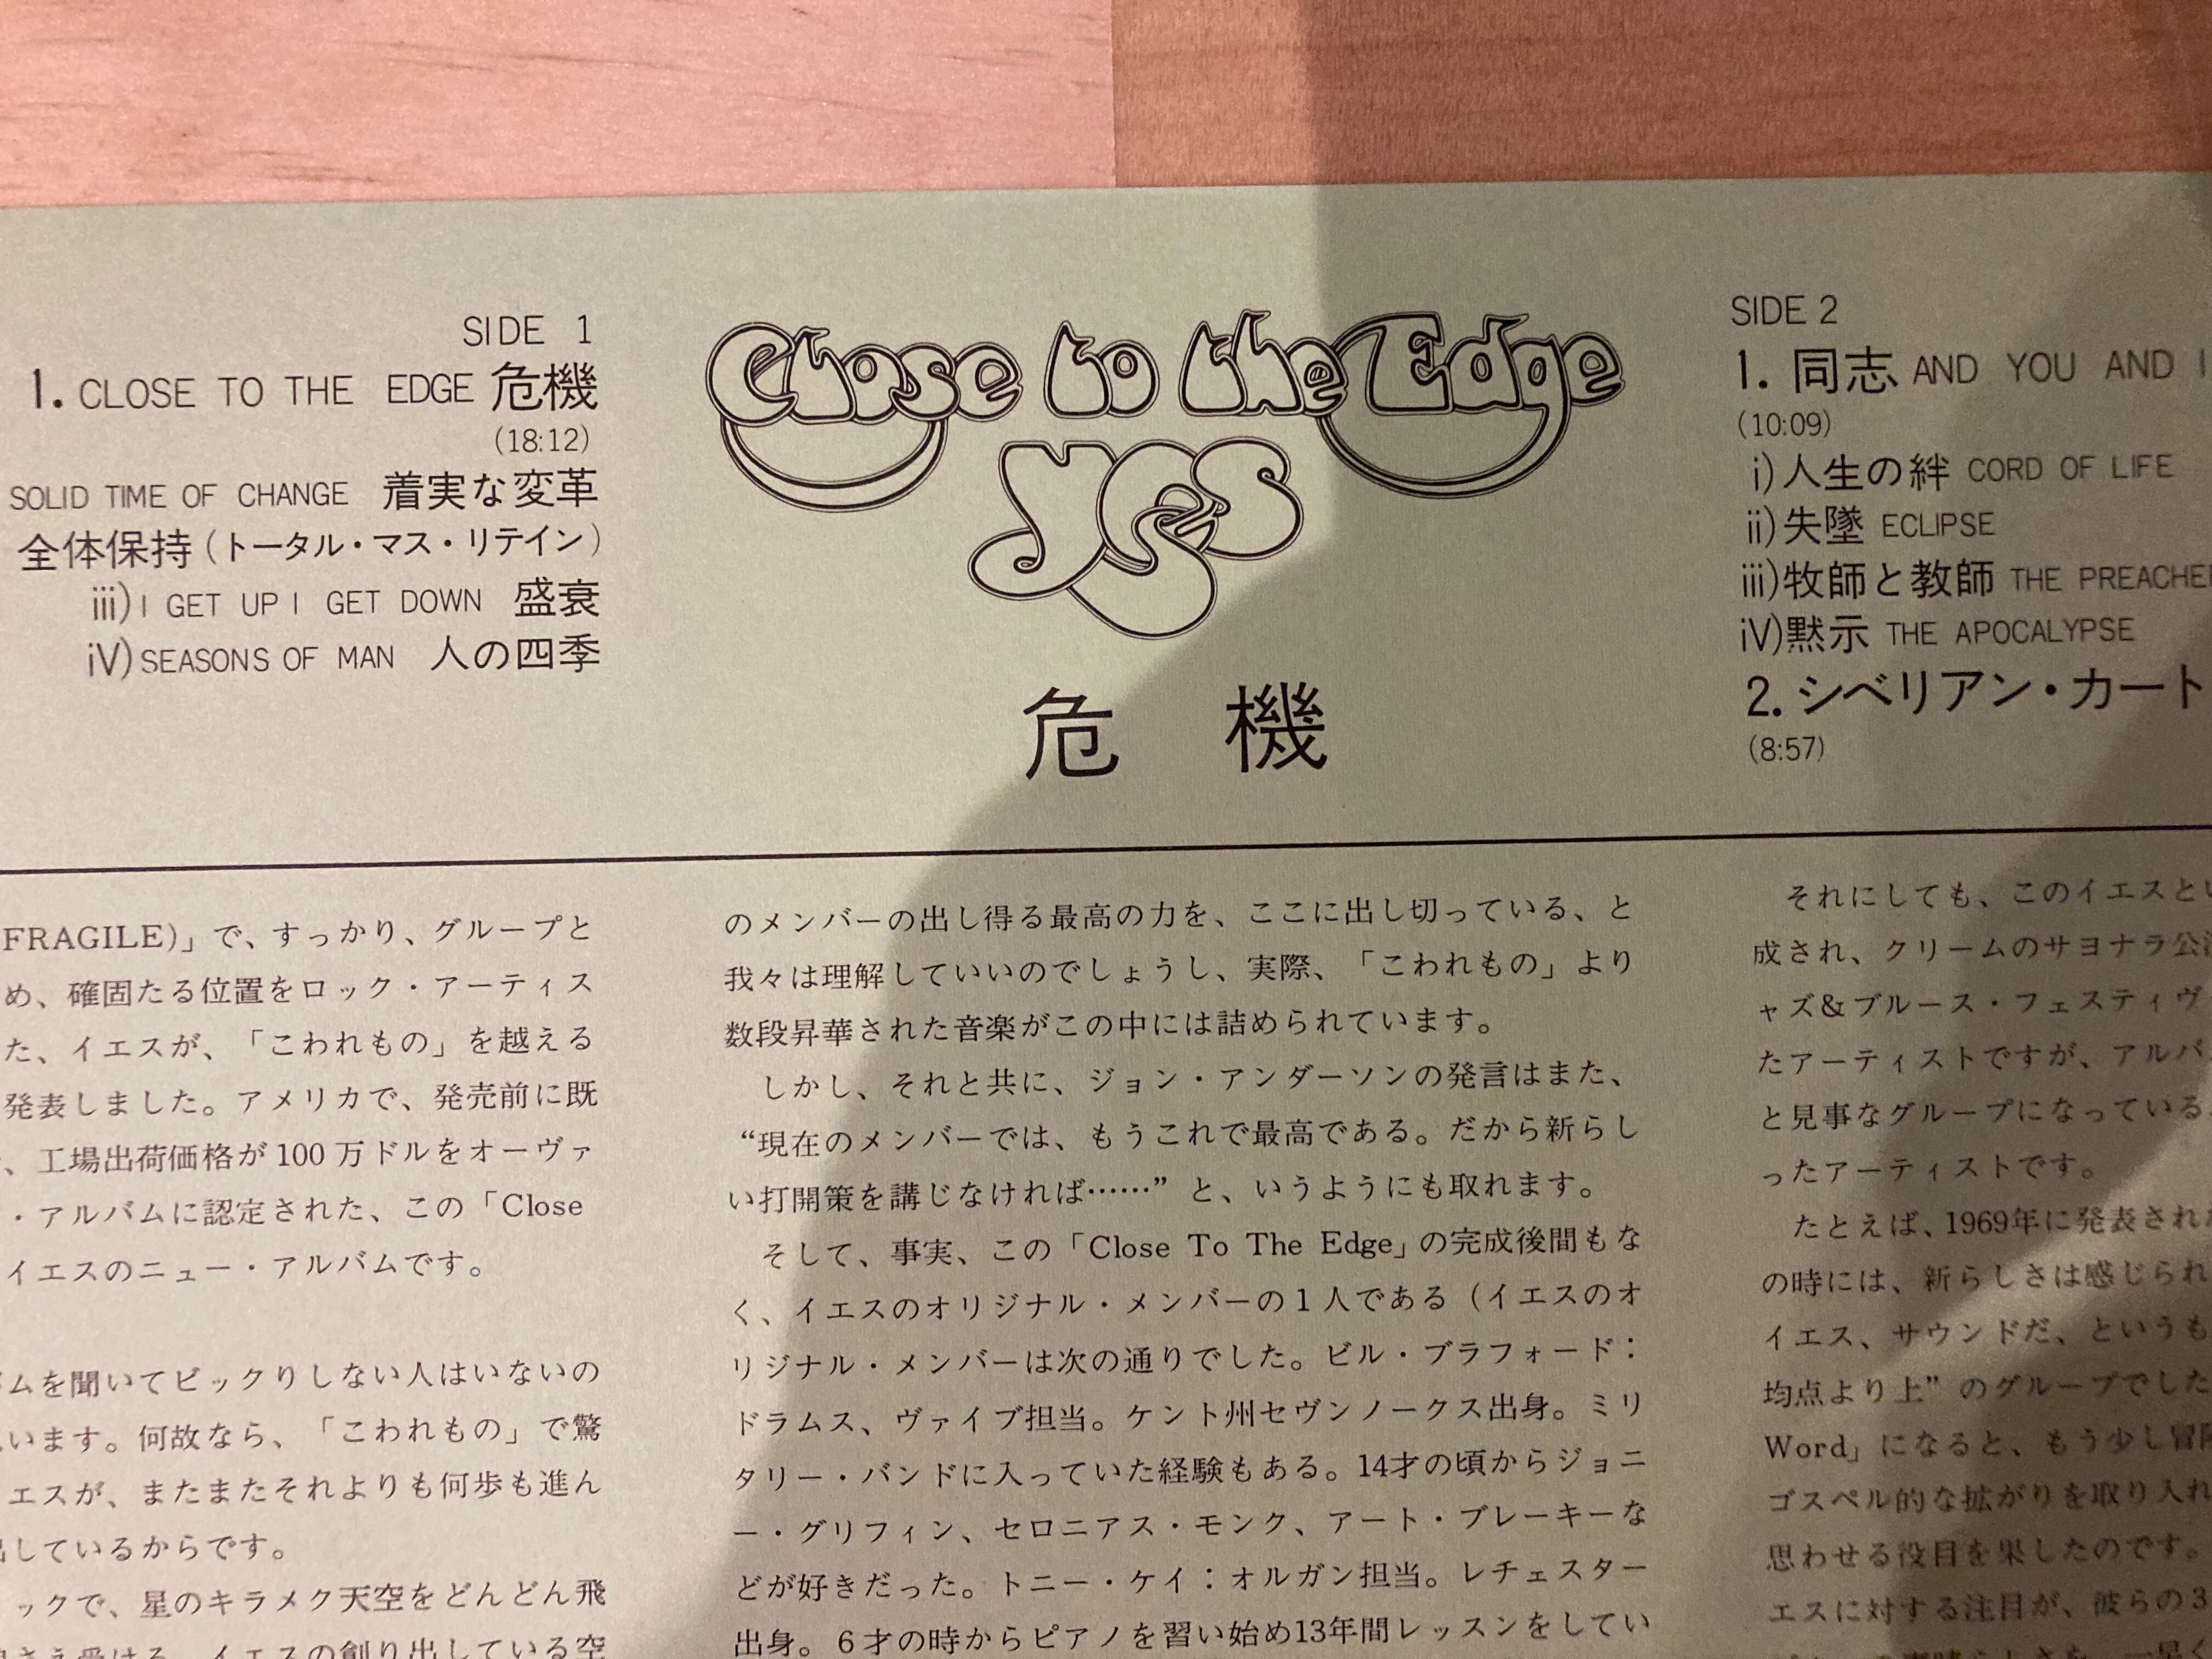 SIDE 1
1. CLOSE TO THE EDGE 危機
(18:12)
SOLID TIME OF CHANGE 着実な変革
全体保持(トータル・マス・リテイン)
iii) I GET UP I GET DOWN 盛衰
iV) SEASONS OF MAN 人の四季
Close to the Edge
yes
危機
SIDE 2
1. 同志 AND YOU AND I
(10:09)
i)人生の絆 CORD OF LIFE
ii)失墜 ECLIPSE
iii)牧師と教師 THE PREACHER
iV)黙示 THE APOCALYPSE
2. シベリアン・カート
(8:57)
FRAGILE)」で、すっかり、グループと
め、確固たる位置をロック・アーティス
た、イエスが、「こわれもの」を越える
発表しました。アメリカで、発売前に既
、工場出荷価格が100万ドルをオーヴァ
・アルバムに認定された、この「Close
イエスのニュー・アルバムです。
ムを聞いてビックりしない人はいないの
います。何故なら、「こわれもの」で驚
エスが、またまたそれよりも何歩も進ん
しているからです。
ックで、星のキラメク天空をどんどん飛
さえ受ける、イエスの創り出している空
のメンバーの出し得る最高の力を、ここに出し切っている、と
我々は理解していいのでしょうし、実際、「こわれもの」より
数段昇華された音楽がこの中には詰められています。
しかし、それと共に、ジョン・アンダーソンの発言はまた、
“現在のメンバーでは、もうこれで最高である。だから新らし
い打開策を講じなければ……”と、いうようにも取れます。
そして、事実、この「Close To The Edge」の完成後間もな
く、イエスのオリジナル・メンバーの1人である（イエスのオ
リジナル・メンバーは次の通りでした。ビル・ブラフォード：
ドラムス、ヴァイブ担当。ケント州セヴンノークス出身。ミリ
タリー・バンドに入っていた経験もある。14才の頃からジョニ
ー・グリフィン、セロニアス・モンク、アート・ブレーキーな
どが好きだった。トニー・ケイ：オルガン担当。レチェスター
出身。6才の時からピアノを習い始め13年間レッスンをしてい
それにしても、このイエスとい
成され、クリームのサヨナラ公
ャズ&ブルース・フェスティヴ
たアーティストですが、アルバ
と見事なグループになっている
ったアーティストです。
たとえば、1969年に発表され
の時には、新らしさは感じられ
イエス、サウンドだ、というも
均点より上”のグループでした
Word」になると、もう少し冒険
ゴスペル的な拡がりを取り入れ
思わせる役目を果したのです。
エスに対する注目が、彼らの3